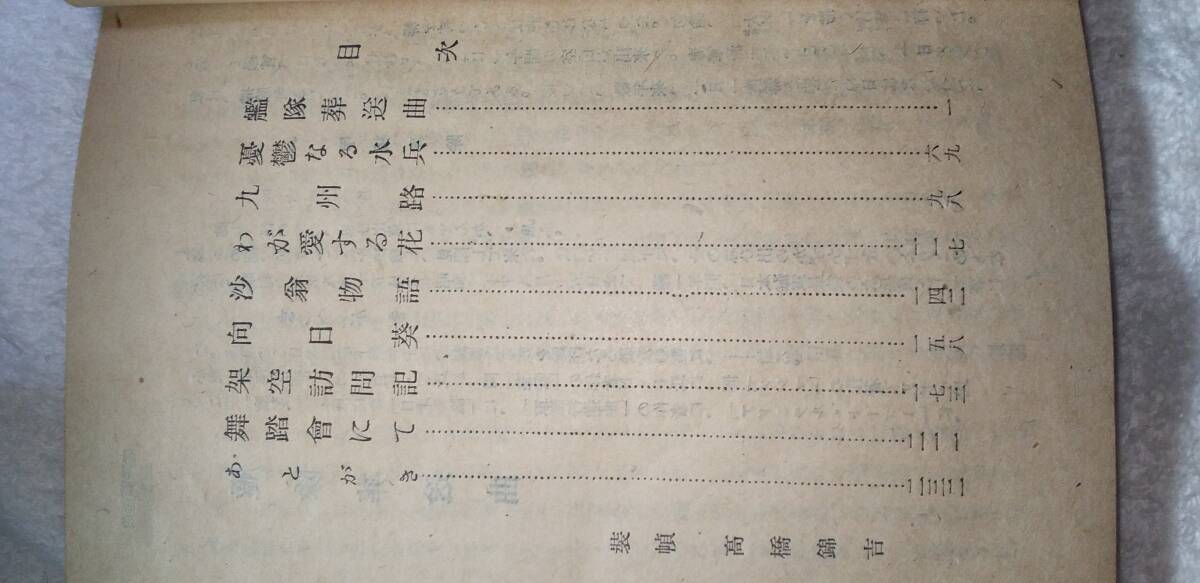 目次
艦隊葬送曲……一
憂鬱なる水兵……六九
九州路……九八
わが愛する花……一一七
沙翁物語……一四二
向日葵……一五八
架空訪問記……一七三
舞踏會にて……二二一
あとがき……二三二
裝幀 高橋錦吉